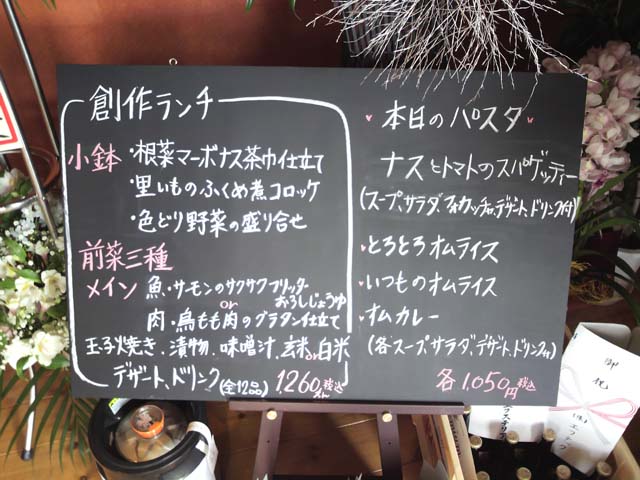 創作ランチ
小鉢 ・根菜マーボナス茶巾仕立て
・里いものふくめ煮コロッケ
・色どり野菜の盛り合せ
前菜三種
メイン 魚・サーモンのサクサクフリッター
or おろしじょうゆ
肉・鳥もも肉のグラタン仕立て
玉子焼き、漬物、味噌汁、玄米or白米
デザート、ドリンク(全12品) 1,260税込
♥本日のパスタ♥
ナスとトマトのスパゲッティー
(スープ、サラダ、フォカッチャ、デザート、ドリンク付)
♥とろとろオムライス
♥いつものオムライス
♥オムカレー
(各スープ、サラダ、デザート、ドリンク付)
各1,050円税込
御祝
(株)エフテック